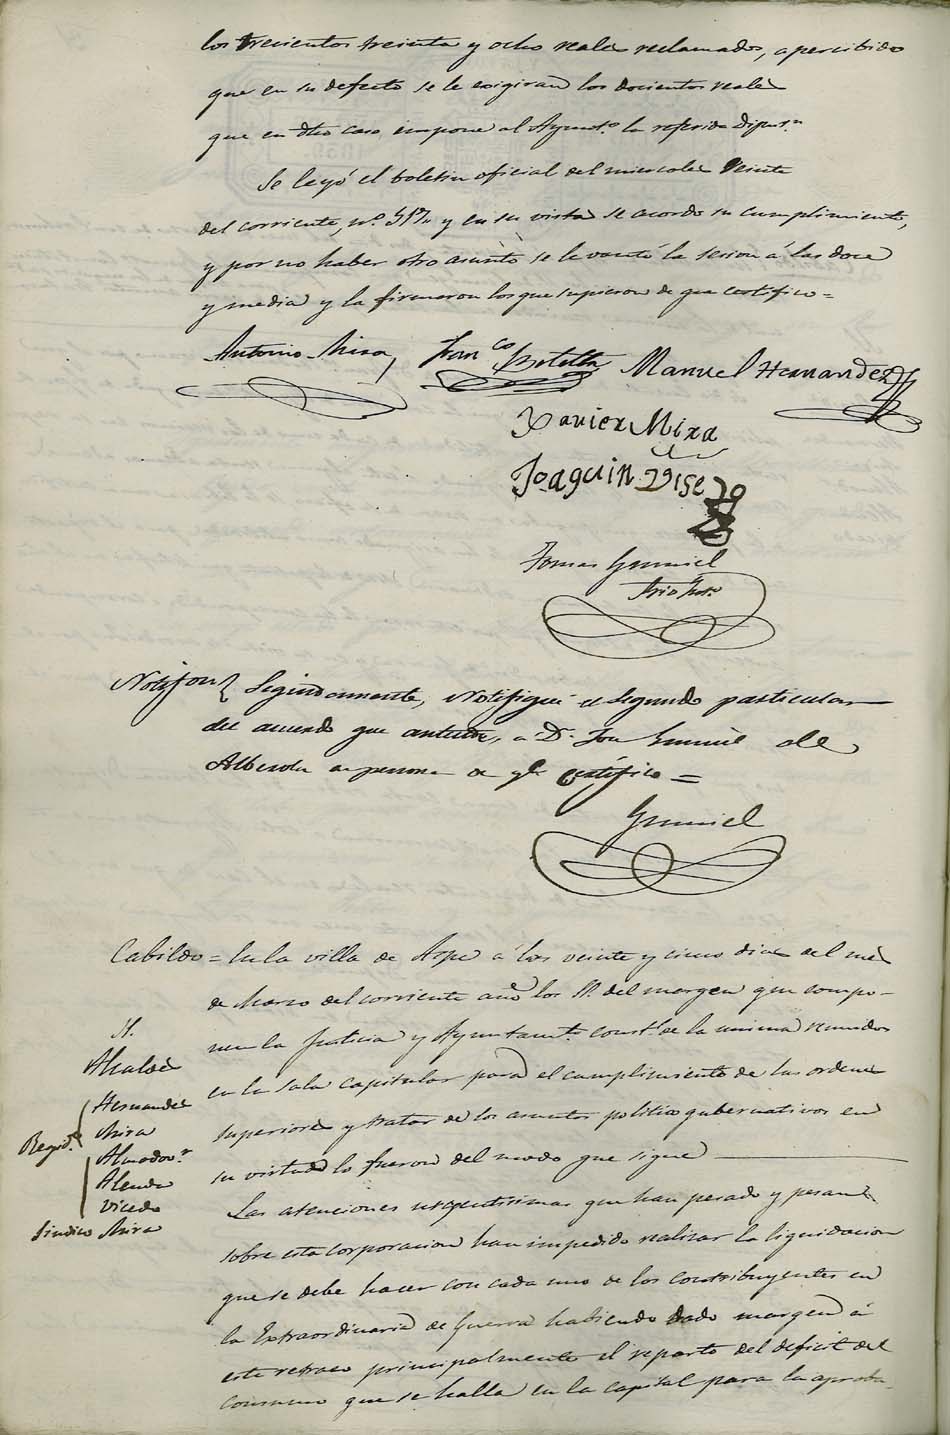 los trecientos treinta y ocho reales reclamados, apercibido
que en su defecto se le exigiran los docientos reales
que en dho caso impone al Ayunt.o la referida Diput.n
Se leyó el boletin oficial del miercoles Veinte
del corriente, n.o y en su vista se acordo su cumplimiento,
y por no haber otro asunto se levantó la sesion á las doce
y media y la firmaron los que supieron de que certifico =
Antonio Mira, Fran.co Botella Manuel Hernandez
Xavier Mira
Joaquin Visedo
Tomas Gumiel
Srio
Notifon Seguidamente, Notifiqué el segundo particular
del acuerdo que antecede, a D. Gumiel de
Alberola en persona de q.e certifico =
Gumiel
Cabildo = En la villa de Aspe á los veinte y cinco dias del mes
de Marzo del corriente año los SS. del margen que compo-
nen la Justicia y Ayuntam.to const.l de la misma reunidos
en la Sala Capitular para el cumplimiento de las ordenes
superiores y tratar de los asuntos politico gubernativos en
su virtud lo fueron del modo que sigue
SS.
Alcaldes
Hernandez
Mira
Regid.s
Almodov.r
Alenda
Vicedo
Sindico Mira
Las atenciones urgentisimas que han pesado y pesan
sobre esta corporacion han impedido realizar la liquidacion
que se debe hacer con cada uno de los contribuyentes en
la Extraordinaria de Guerra habiendo dado margen á
este retraso principalmente el reparto del deficit del
consumo que se halla en la capital para la aproba-